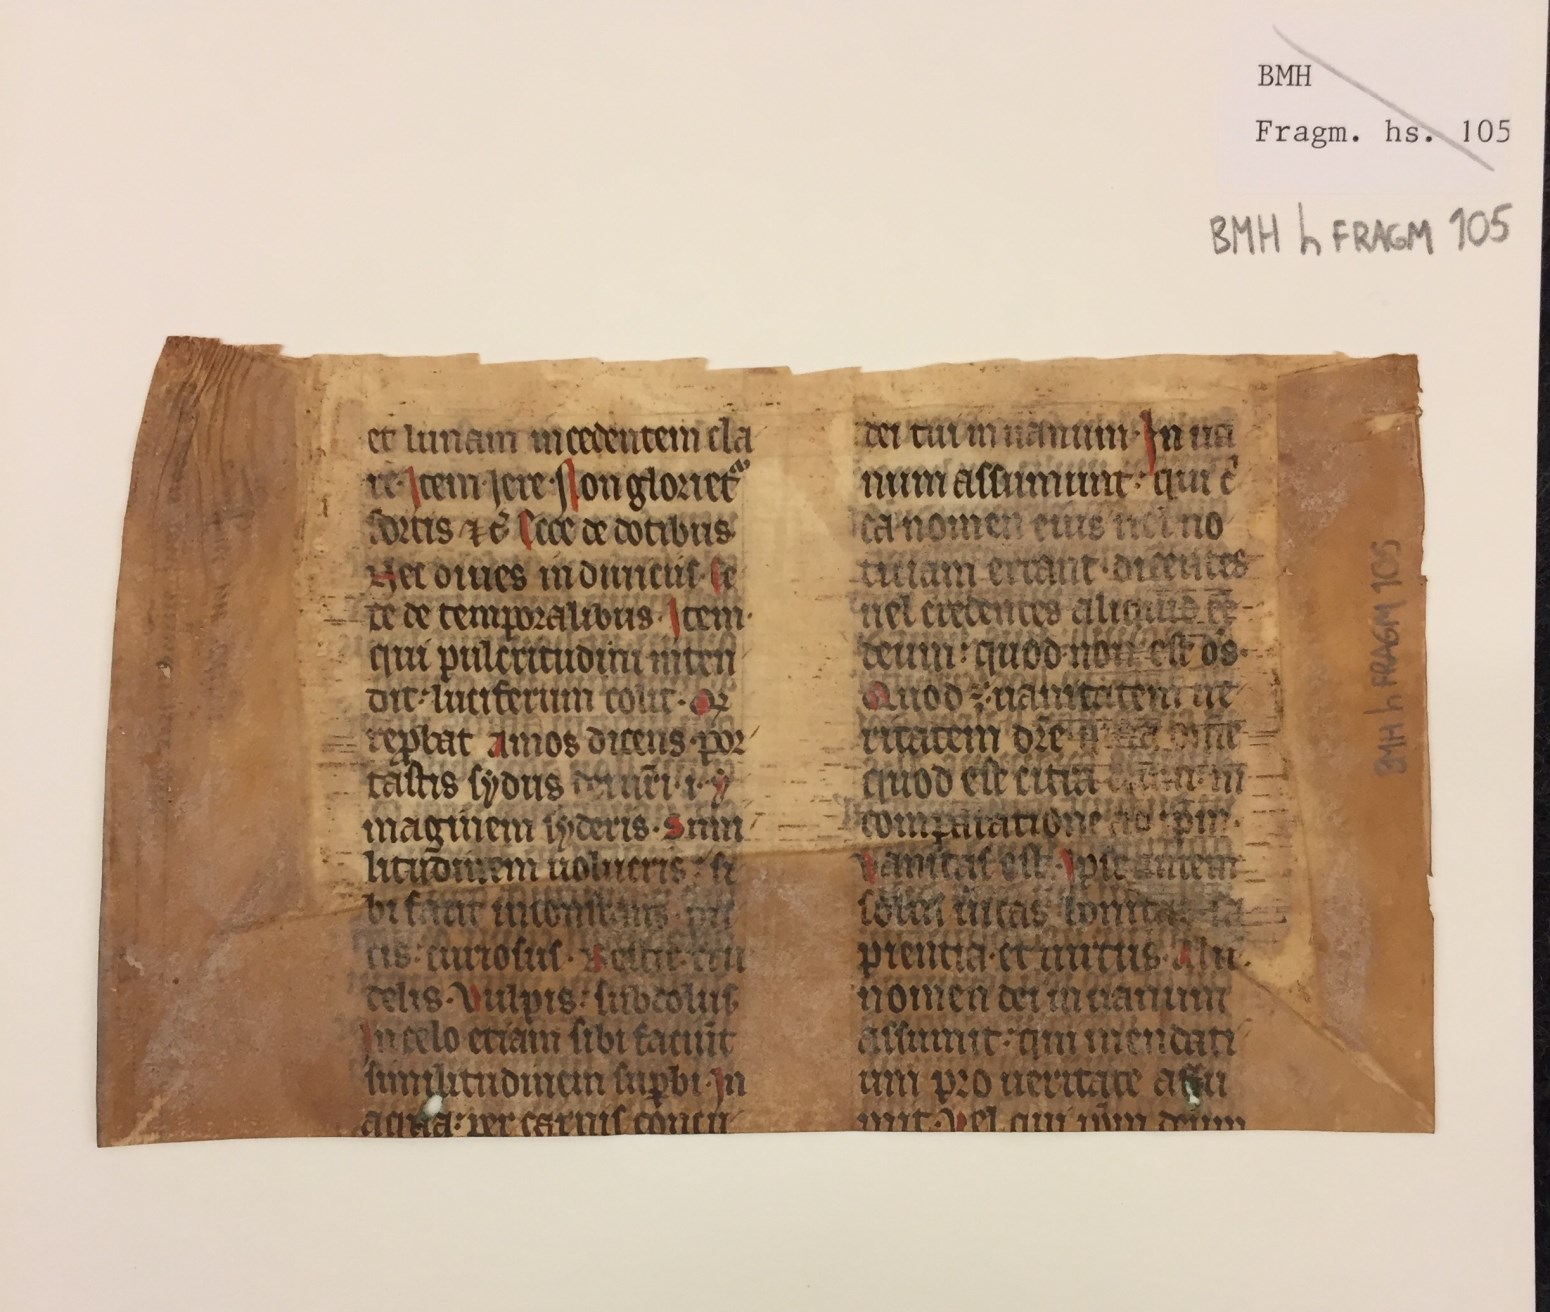 BMH
Fragm. hs. 105
BMH h FRAGM 105
et lunam incedentem cla
re. Item Jere. Non gloriet᷑
fortis ⁊ c̃. Scće de dotibus
Nec diues in diuiciis. se
te de temporalibus. Item
qui pulcritudini inten
dit. luciferum colit. 
rep̱bat Amos dicens. por
tastis sydus dei ur̃i. i.
imaginem syderis. Simi
litudinem uolucris. si
bi facit inconstans.
cis. curiosus.
delis. Vulpis. subdolus
In celo etiam sibi faciu̅t
similitudinem sup̱bi. In
aqua. per carnis concu
dei tui in uanum. In ua
num assumunt. qui c̃
ca nomen eius uel no
ticiam errant. dicentes
uel credentes aliquid e̅e̅
deum. quod non est d̅s.
Quod uanitatem ue
ritatem dr̃e
quod est citra
comparatione ad
Vanitas est. Ipse autem
solus bonitas. sa
pientia. et uirtus. Aliu.
nomen dei in uanum
assumit. qui mendati
um pro ueritate assu
mit. Vel qui unu̅ deum
BMH h FRAGM 105